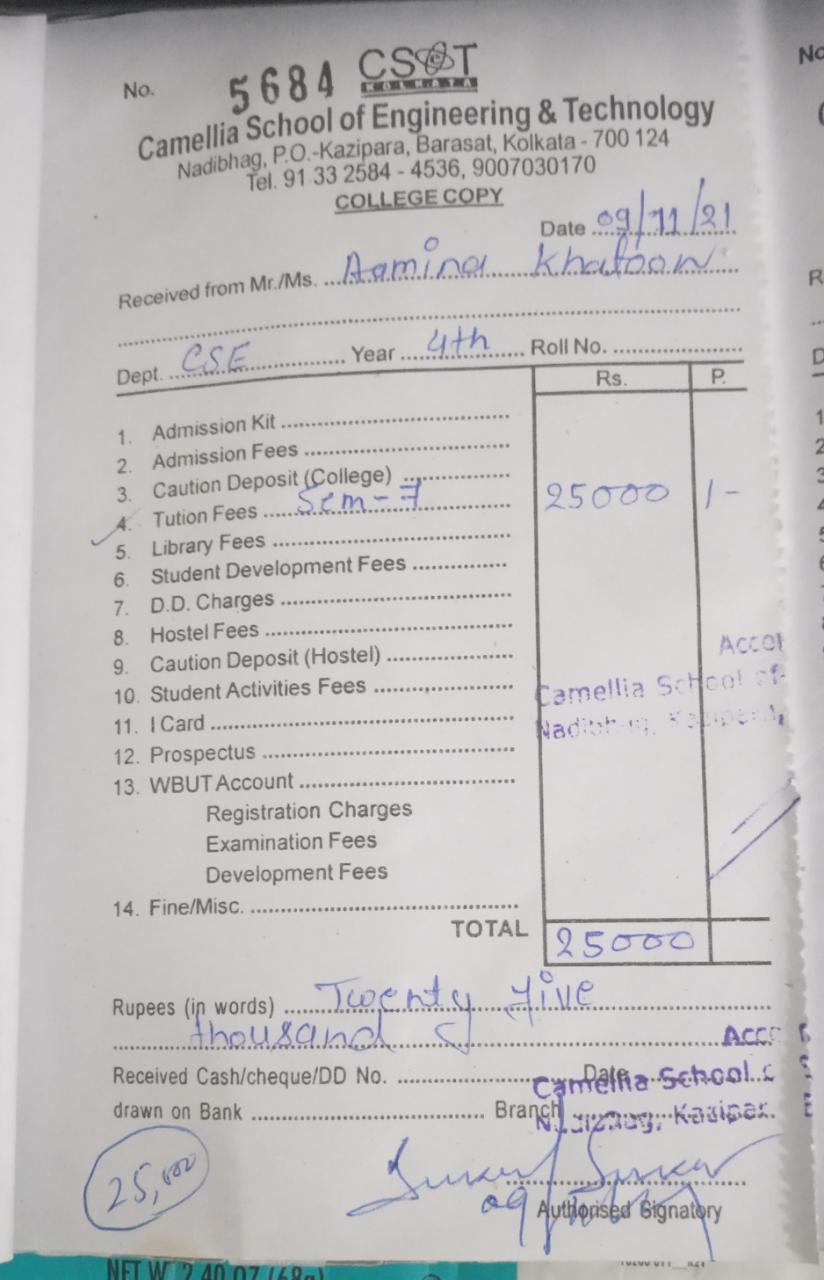 No. 5684 CSET
KOLKATA
Camellia School of Engineering & Technology
Nadibhag, P.O.-Kazipara, Barasat, Kolkata - 700 124
Tel. 91 33 2584 - 4536, 9007030170
COLLEGE COPY
Date 09/11/21
Received from Mr./Ms. Aamina Khatoon
Dept. CSE Year 4th Roll No.
Rs. P.
1. Admission Kit
2. Admission Fees
3. Caution Deposit (College)
4. Tution Fees Sem-7 25000 /-
5. Library Fees
6. Student Development Fees
7. D.D. Charges
8. Hostel Fees
9. Caution Deposit (Hostel)
Accou
10. Student Activities Fees
Camellia School of
11. I Card
Nadibhag, Kazipara,
12. Prospectus
13. WBUT Account
Registration Charges
Examination Fees
Development Fees
14. Fine/Misc.
TOTAL 25000
Rupees (in words) Twenty five
thousand
Acco
Received Cash/cheque/DD No. Date
Camellia School
drawn on Bank Branch
Kazipar
25,000
09
Authorised Signatory
NET W 2.40 OZ (68g)